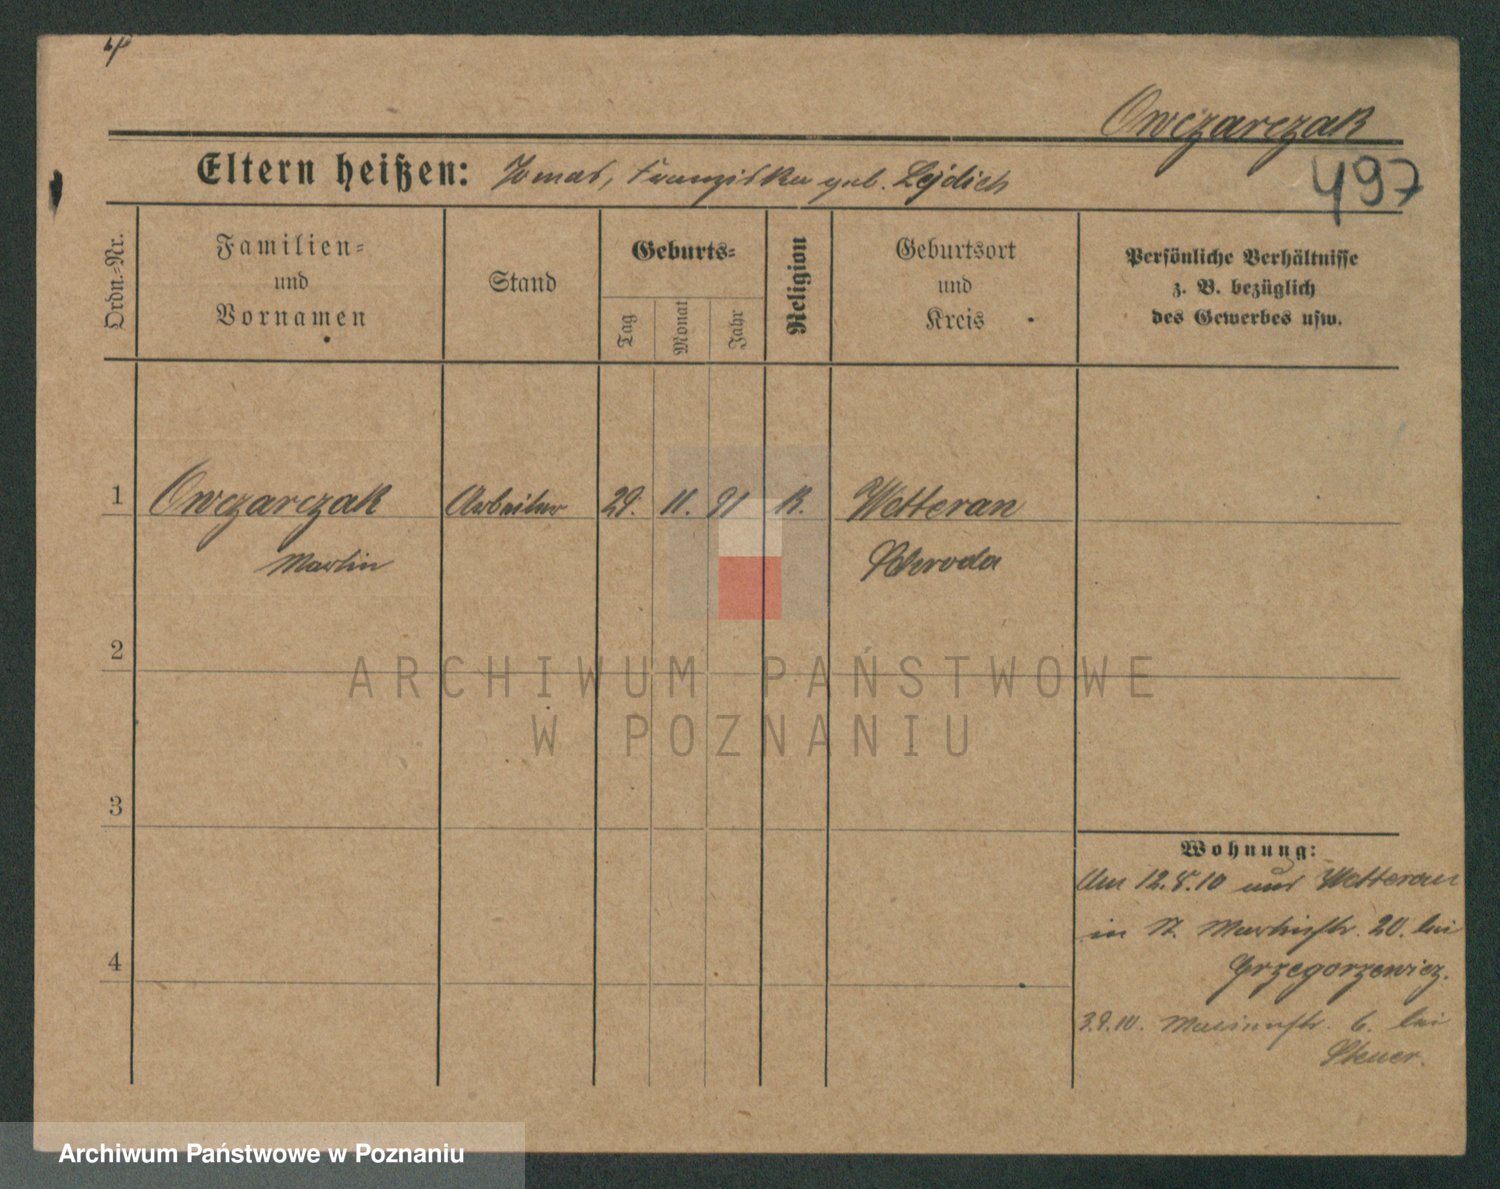 Owczarczak
Eltern heißen: Tomas, Franziska geb. Lejdich
497
Ordn.=Nr.
Familien=
und
Vornamen
Stand
Geburts=
Tag
Monat
Jahr
Religion
Geburtsort
und
Kreis
Persönliche Verhältnisse
z. B. bezüglich
des Gewerbes usw.
1 Owczarczak Arbeiter 29. 11. 91 K. Wetteran
Martin Schroda
2
ARCHIWUM PAŃSTWOWE
W POZNANIU
3
Wohnung:
Am 12.8.10 aus Wetteran
in St. Martinstr. 20. bei
Grzegorzewicz.
4
3.9.10. 6. bei
Steuer.
Archiwum Państwowe w Poznaniu